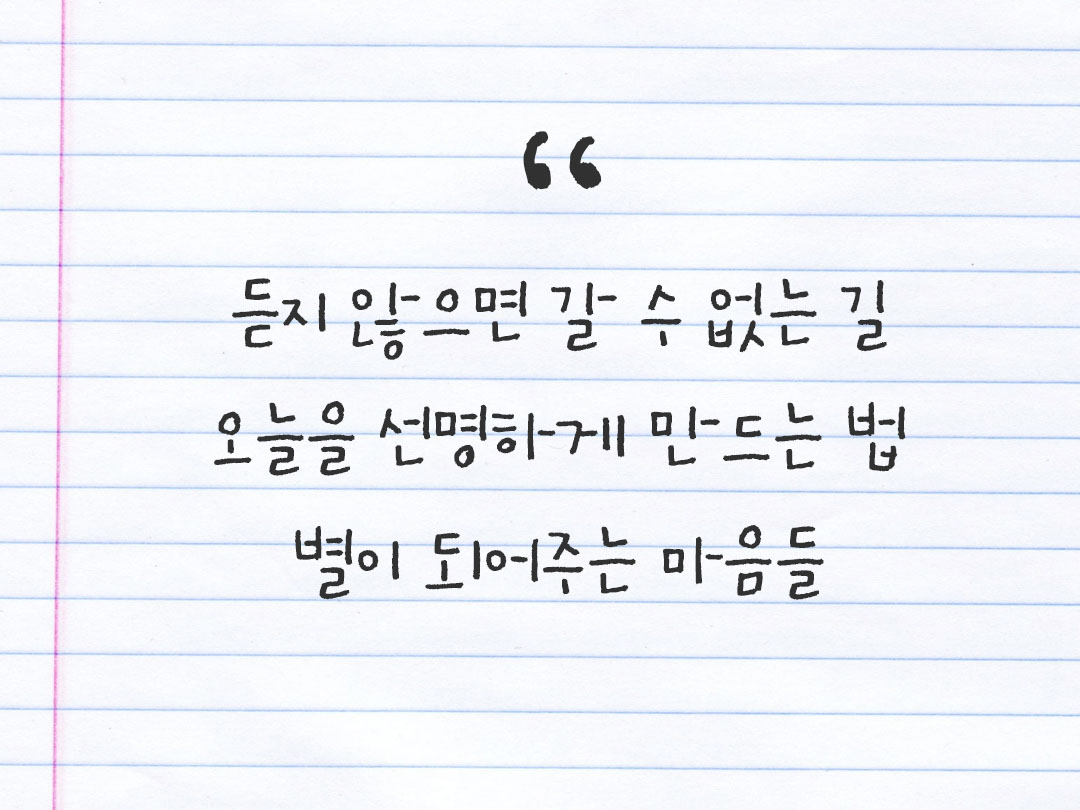 “
듣지 않으면 갈 수 없는 길
오늘을 선명하게 만드는 법
별이 되어주는 마음들